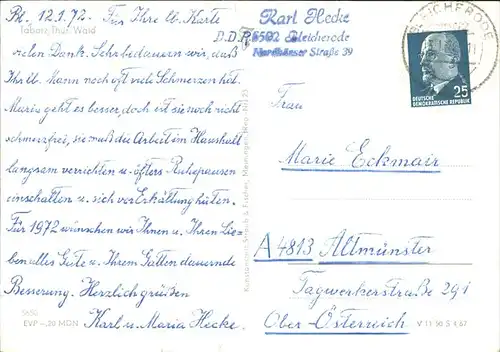 Bl. 12.1.72. Für Ihre lb. Karte
Tabarz, Thür. Wald
vielen Dank. Sehr bedauern wir, daß
Ihr lb. Mann noch oft viele Schmerzen hat.
Maria geht es besser, doch ist sie noch nicht
schmerzfrei, sie muß die Arbeit im Haushalt
langsam verrichten u. öfters Ruhepausen
einschalten u. sich vor Erkältung hüten.
Für 1972 wünschen wir Ihnen u. Ihren Lie-
ben alles Gute u. Ihrem Gatten dauernde
Besserung. Herzlich grüßen
Karl u. Maria Hecke.
EVP -,20 MDN
Karl Hecke
D.D.R. 5502 Bleicherode
Nordhäuser Straße 39
BLEICHERODE
25
DEUTSCHE
DEMOKRATISCHE REPUBLIK
Frau
Marie Eckmair
A 4813 Altmünster
Tagwerkerstraße 291
Ober-Österreich
V 11 50 S 4,67